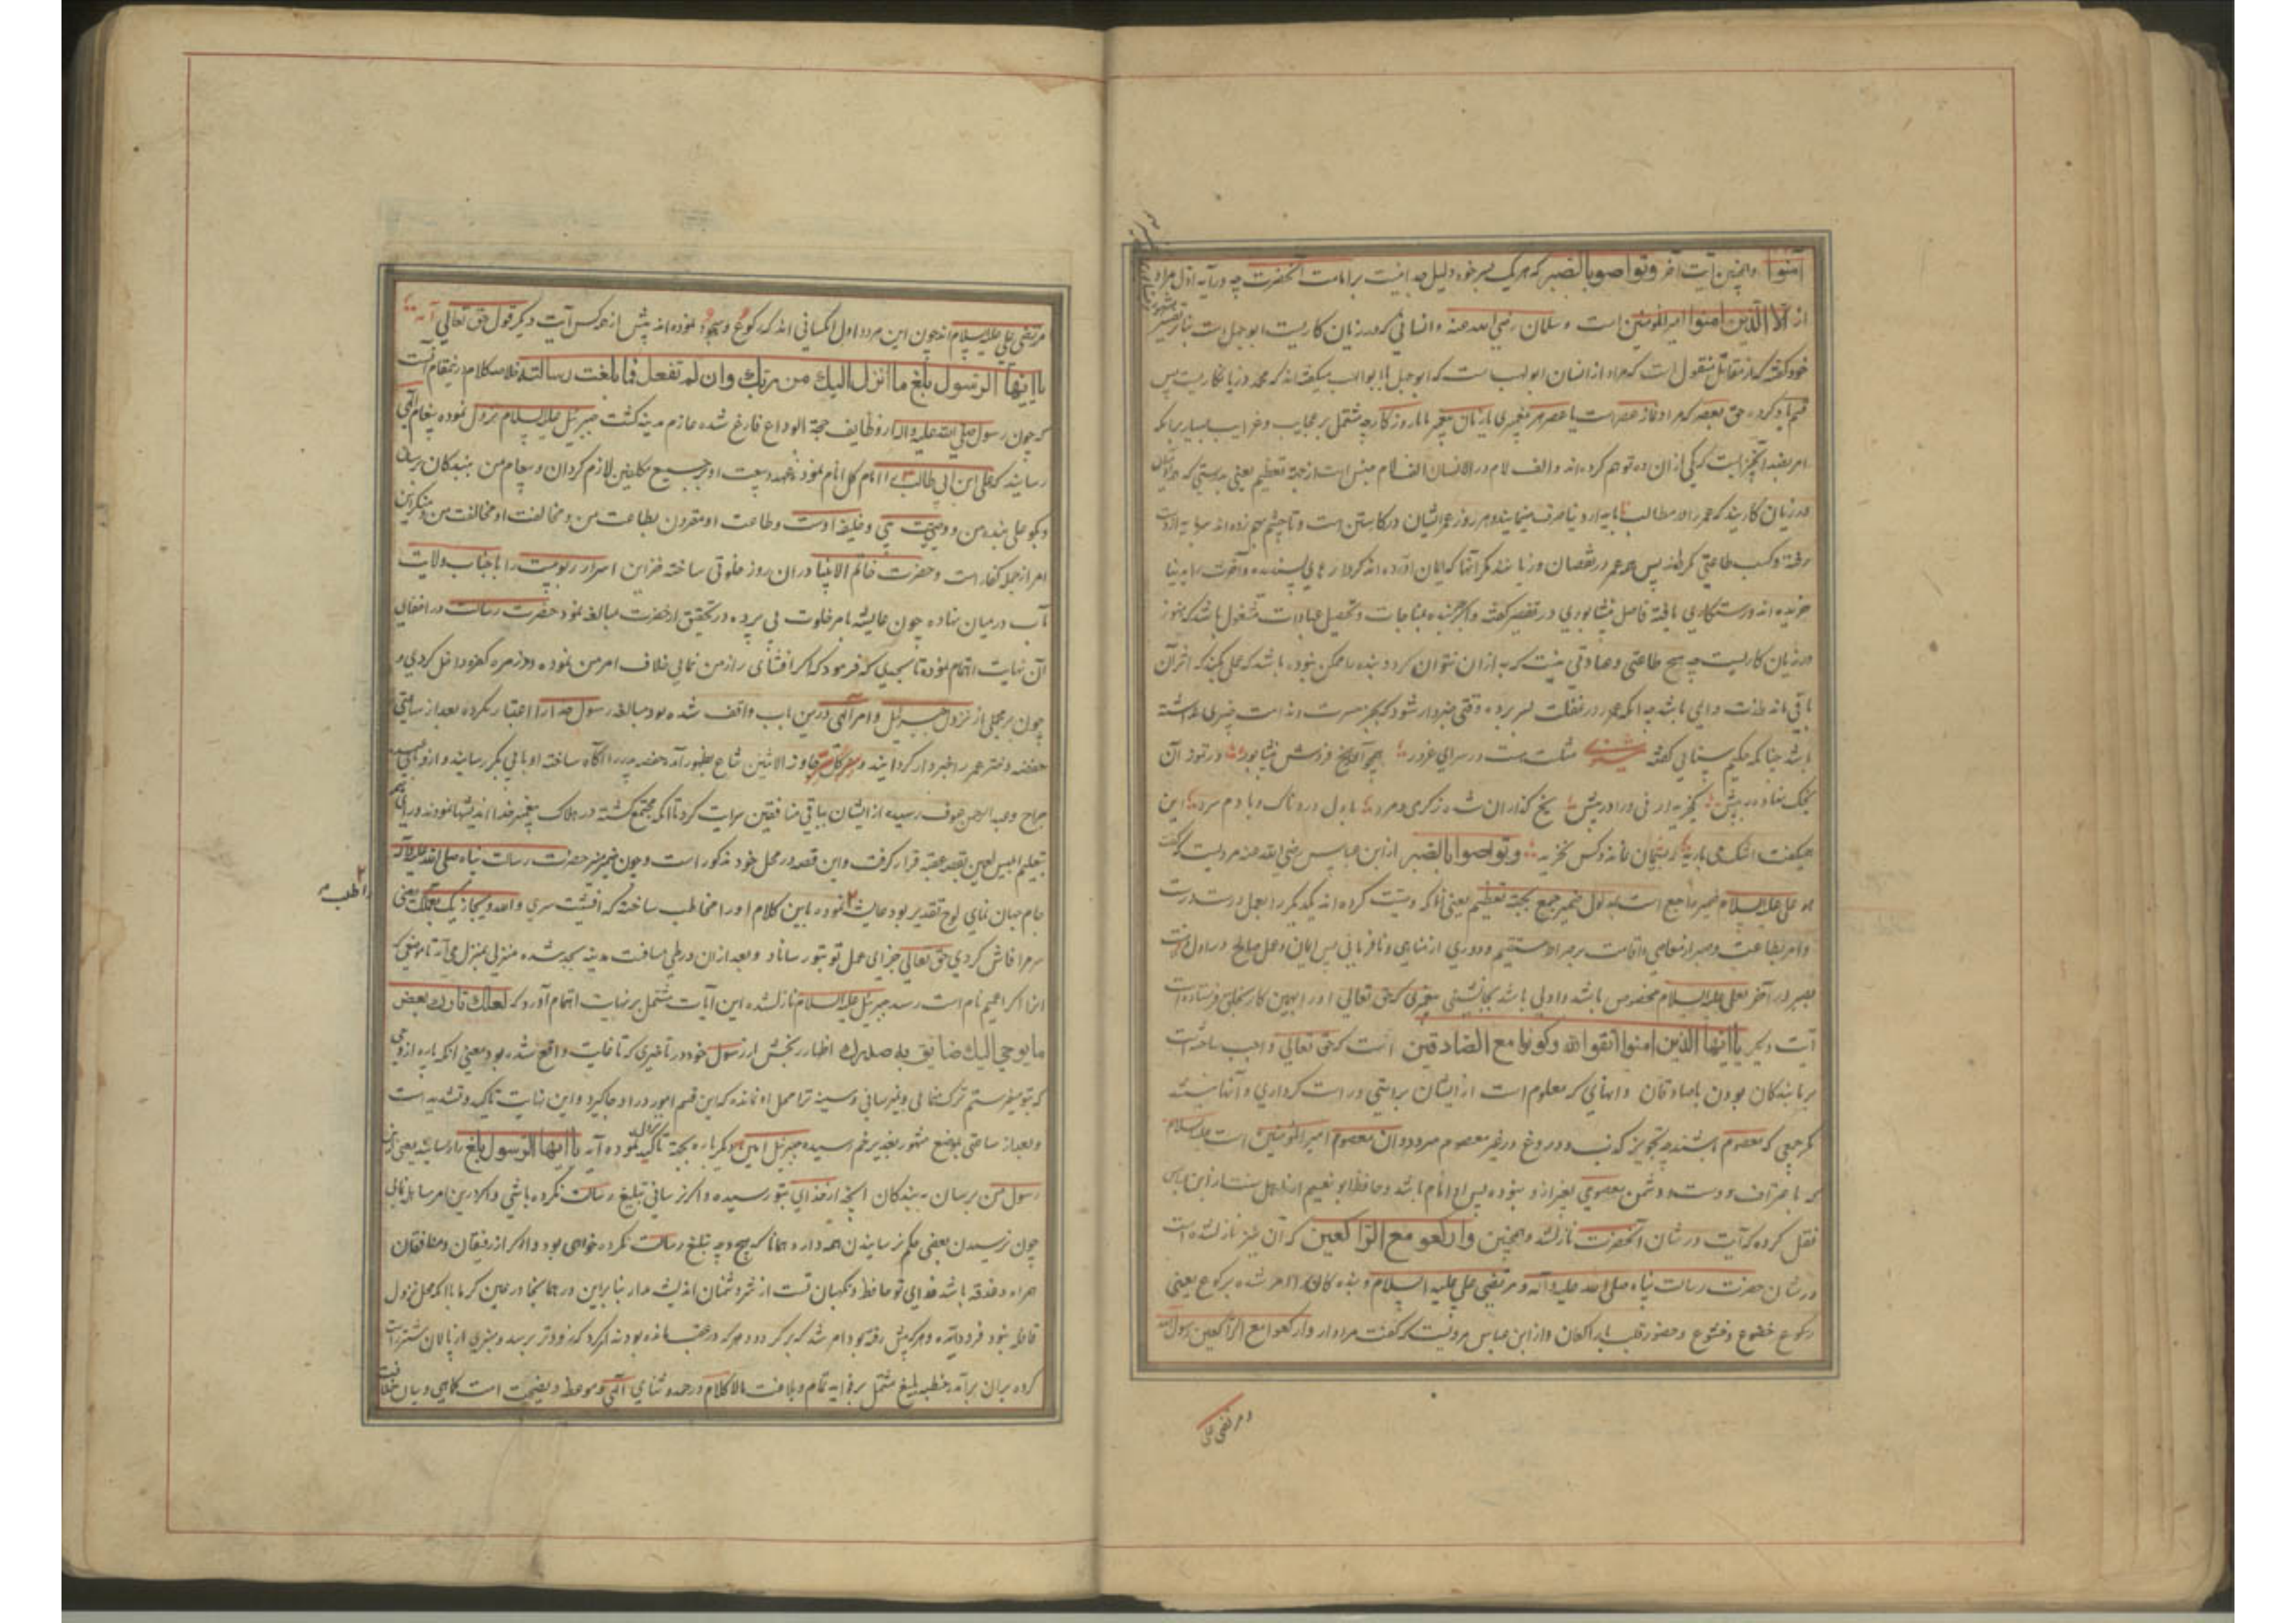 آمنوا و همچنین آیت آخر وتواصوا بالصبر که هر یک بسر خود دلیل جداست بر امامت آنحضرت چه در آیه اول مراد
از الا الذین آمنوا امیر المؤمنین است و سلمان رضی الله عنه و انسانی که در زیان کاریست ابو جهل است بنابر تفسیر
خود گفته که از مقاتل منقول است که مراد از انسان ابو لهب است که ابو جهل با ابو لهب میگفته اند که محمد در زیانکاریست پس
قسم یاد کرده حق بعصر که مراد نماز عصر است یا عصر هر پیغمبری یا زمان پیغمبر ما یا روزگار چه مشتمل بر عجایب و غرایب بسیار
امر بضد آنچیز است که از آن ده توهم کرده اند و الف لام در الانسان الف لام جنس است از جهة تعظیم یعنی بدرستی که
در زیان کارند که عمر را در مطالب ناپایدار دنیا صرف مینمایند و هر روز عمر ایشان در کاستن است و تا چشم بهم زده اند سرمایه از دست
رفته و کسب طاعتی نکرده اند پس همه عمر در نقصان و زیانند مگر آنها که ایمان آورده اند کردارهای پسندیده و آخرت را بدنیا
خریده اند و رستگاری یافته فاضل نیشابوری در تفسیر گفته و اگر بنده بمناجات و تحصیل عبادات مشغول باشد که هنوز
در زیان کاریست چه هیچ طاعتی و عبادتی نیست که به از آن نتوان کرد و بنده را ممکن نبوده باشد که عملی بکند که اثر آن
باقی ماند و دایمی باشد چه آنکه عمر در غفلت بسر برده و وقتی خبردار شود که بجز حسرت و ندامت چیزی نداشته
باشد چنانکه حکیم سنایی گفته مثلت هست در سرای غرور همچو آن یخ فروش نیشابور در تموز آن
یخک نهاده به پیش کس خریدار نی و او درویش یخ گدازان شده ز گرمی و مرد با دل دردناک و با دم سرد این
همیگفت اشک می بارید که بسی مان نماند و کس نخرید وتواصوا بالصبر از ابن عباس رضی الله عنه مرویست که گفت
به علی علیه السلام ضمیر راجع است ضمیر جمع بجهة تعظیم یعنی آنانکه وصیت کرده اند یکدیگر را بعمل درست
و امر بطاعت و صبر از معاصی و اقامت بر صراط مستقیم و دوری از مناهی و نافرمانی پس ایمان و عمل صالح در اول
بصبر در آخر بعلی علیه السلام مخصوص باشد و اولی باشد بجانشینی پیغمبری که حق تعالی او را بهمین کار بخلق فرستاده است
آیت دیگر یا ایها الذین امنوا اتقوا الله وکونوا مع الصادقین آنست که حق تعالی واجب ساخته است
بر ما بندگان بودن با صادقان و آنهایی که معلوم است از ایشان براستی و راست کرداری و آنها نیستند
مگر جمعی که معصوم باشند چه تجویز کذب و دروغ در غیر معصوم میرود و آن معصوم امیر المؤمنین است علیه السلام
که باعتراف دوست و دشمن معصومی بغیر از او نبوده پس او امام باشد و حافظ ابو نعیم از اهل سنت از ابن عباس
نقل کرده که آیت در شان آنحضرت نازلشد و همچنین وارکعوا مع الراکعین که آن نیز نازلشده است
در شان حضرت رسالت پناه صلی الله علیه و آله و مرتضی علی علیه السلام و بنده گان را امر شده برکوع یعنی
رکوع خضوع و خشوع و حضور قلب با راکعان و از ابن عباس مرویست که گفت مراد از وارکعوا مع الراکعین رسول الله
و مرتضی علی
مرتضی علی علیه السلام اند چون این هر دو اول کسانی اند که رکوع و سجود نموده اند پیش از همه کس آیت دیگر قول حق تعالی
یا ایها الرسول بلغ ما انزل الیک من ربک وان لم تفعل فما بلغت رسالته خلاصه کلام درینمقام آنست
که چون رسول صلی الله علیه و آله از وظایف حجة الوداع فارغ شده عازم مدینه گشت جبرئیل علیه السلام نزول نموده پیغام الهی
رسانید که علی ابن ابی طالب را امام کل انام نموده عهد و بیعت او بر جمیع مکلفین لازم گردان و پیغام من ببندگان برسان
و بگو علی بنده من و وصی نبی و خلیفه اوست و طاعت او مقرون بطاعت من و مخالفت او مخالفت من و منکر این
امر از جمله کفار است و حضرت خاتم الانبیا در آن روز خلوتی ساخته خزاین اسرار ربوبیت را با جناب ولایت
مآب در میان نهاده چون عایشه بامر خلوت پی برده در تحقیق آنحضرت مبالغه نمود حضرت رسالت در اخفای
آن نهایت اهتمام نموده تا بحدی که فرمود که اگر افشای راز من نمایی خلاف امر من نموده در زمره کفره داخل گردی و
چون بر مجمل از نزول جبرئیل و امر الهی درین باب واقف شده بود مبالغه رسول خدا را اعتبار نکرده بعد از ساعتی
حفصه دختر عمر را خبردار گردانید و سر کل سر جاوز الاثنین شاع بظهور آمد حفصه پدر را آگاه ساخته او بابی بکر رسانید و از او بابی عبیده
جراح و عبد الرحمن عوف رسیده از ایشان بباقی منافقین سرایت کرد تا آنکه مجتمع گشته در هلاک پیغمبر خدا اندیشها نمودند و رای
بتعلیم ابلیس لعین بقصه عقبه قرار گرفت و این قصه در محل خود مذکور است و چون ضمیر منیر حضرت رسالت پناه صلی الله علیه و آله
جام جهان نمای لوح تقدیر بود عایشه نمود باین کلام او را مخاطب ساخته که افشیت سری والله و یجازیک بعملک یعنی
سر مرا فاش کردی حق تعالی جزای عمل تو بتو رساناد و بعد از آن در طی مسافت مدینه بجد شده منزل بمنزل می آمد تا موضعی که
آنرا کراع الغمیم نام است رسید جبرئیل علیه السلام نازلشده این آیات مشتمل بر نهایت اهتمام آورد که لعلک تارک بعض
ما یوحی الیک وضایق به صدرک اظهار رنجش از رسول خود در تاخیری که تا غایت واقع شده بود معنی آنکه پاره از وحی
که بتو میفرستم ترک می نمایی و نمیرسانی و سینه ترا محل آن نمانده که این قسم امور در او جا گیرد و این نهایت تاکید و تشدید است
و بعد از ساعتی بموضع مشهور بغدیر خم رسیده جبرئیل امین دیگر باره بجهة تاکید نزول نموده آیه یا ایها الرسول بلغ را رسانید یعنی ای
رسول من برسان به بندگان آنچه از خدای بتو رسیده و اگر نرسانی تبلیغ رسالت نکرده باشی و اگر درین امر مساهله نمایی
چون نرسیدن بعضی حکم نرسانیدن همه دارد همانا که هیچ وجه تبلیغ رسالت نکرده خواهی بود و اگر از رفیقان و منافقان
همراه دغدغه باشد خدای تو حافظ و نگهبان تست از شر دشمنان اندیشه مدار بنابراین در همانجا در عین گرما با آنکه محل نزول
قافله نبود فرود آمده و هر که پیش رفته بود امر شد که برگردد و هر که در عقب مانده بود ندا کرد که زودتر برسد و منبری از پالان شتر راست
کرده بران برآمد و خطبه بلیغ مشتمل بر فواید تمام و بلاغت مالا کلام در حمد و ثنای الهی و موعظه و نصیحت است کماهی و بیان خلافت